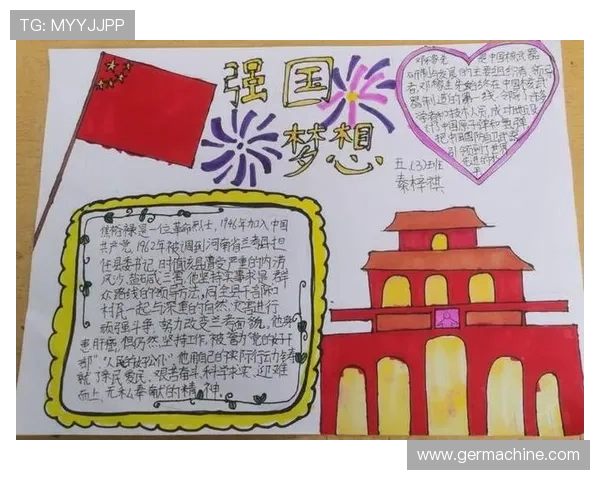 TG: MYYJJPP
强国
梦想
邓稼先 是中国核武器
研制与发展的主要组织者、领导
者,邓稼先始终在中国核武
器制造的第一线,领导了许多
学者和技术人员,成功地设
计了中国原子弹和氢弹,
把中国国防自卫武器
引领到了世界
先进的水平
五、(3)班
秦梓祺
焦裕禄是一位革命烈士,1946年加入中国
共产党,1962年被调到河南省兰考县担
任县委书记,时值该县遭受严重的内涝
风沙、盐碱三害,他坚持实事求是群
众路线的领导方法,同全县干部和
村民一起与深重的自然灾害进行
顽强斗争,努力改变兰考面貌,他身
患肝癌,但仍然坚持工作,被誉为"党的好干
部""人民的好公仆"他用自己的实际行动
就了亲民爱民、艰苦奋斗、科学求实、迎难
而上、无私奉献的精神。
www.germachine.com